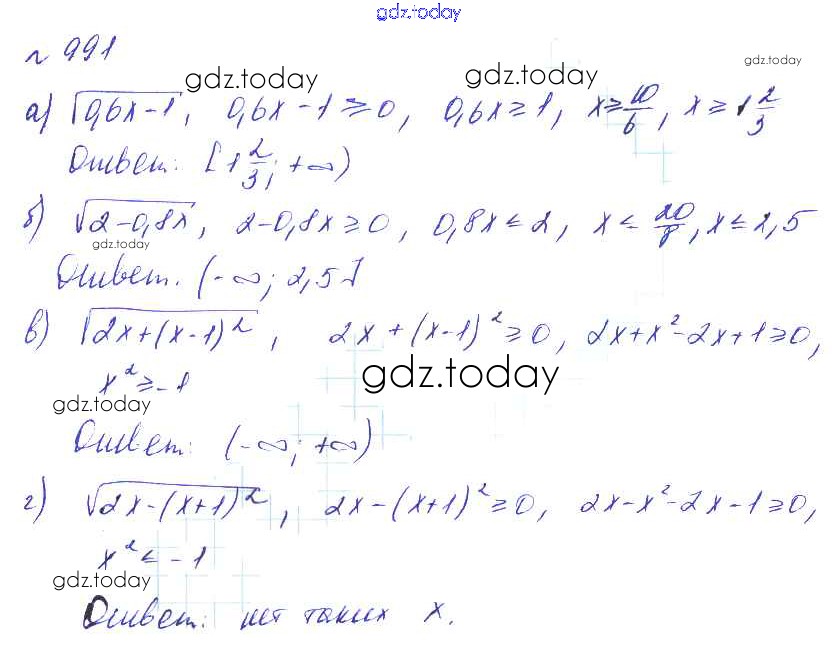 gdz.today
№ 991
gdz.today
gdz.today gdz.today
а) √(0,6x-1), 0,6x-1≥0, 0,6x≥1, x≥10/6, x≥1 2/3
Ответ: [1 2/3; +∞)
б) √(2-0,8x), 2-0,8x≥0, 0,8x≤2, x≤20/8, x≤2,5
gdz.today
Ответ. (-∞; 2,5]
в) √(2x+(x-1)²), 2x+(x-1)²≥0, 2x+x²-2x+1≥0,
x²≥-1
gdz.today
gdz.today
Ответ: (-∞; +∞)
г) √(2x-(x+1)²), 2x-(x+1)²≥0, 2x-x²-2x-1≥0,
x²≤-1
gdz.today
Ответ: нет таких x.